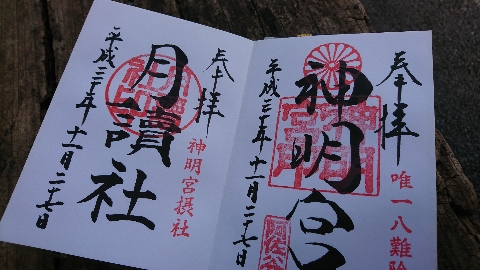 奉拝
唯一八難除
神明宮
阿佐ヶ谷
平成三十年十一月二十七日
奉拝
神明宮摂社
月讀社
平成三十年十一月二十七日